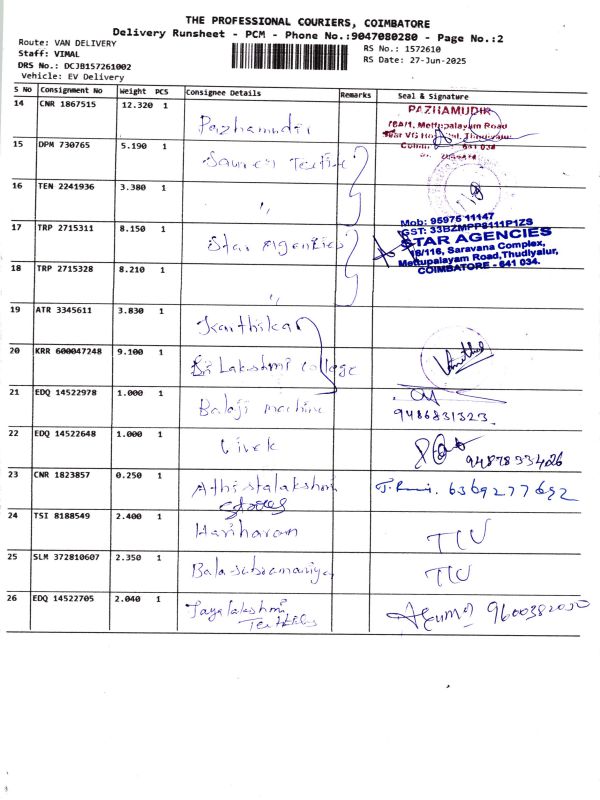 THE PROFESSIONAL COURIERS, COIMBATORE
Delivery Runsheet - PCM - Phone No.:9047080280 - Page No.:2
Route: VAN DELIVERY
RS No.: 1572610
Staff: VIMAL
RS Date: 27-Jun-2025
DRS No.: DCJB157261002
Vehicle: EV Delivery
S No Consignment No Weight PCS Consignee Details Remarks Seal & Signature
14 CNR 1867515 12.320 1 Pazhamudir
PAZHAMUDIR
Mettupalayam Road
15 DPM 730765 5.190 1
16 TEN 2241936 3.380 1 "
17 TRP 2715311 8.150 1 Star Agencies
Mob: 95975 11147
GST: 33BZMPP8111P1ZS
STAR AGENCIES
18/116, Saravana Complex,
Mettupalayam Road,Thudiyalur,
COIMBATORE - 641 034.
18 TRP 2715328 8.210 1 "
19 ATR 3345611 3.830 1 Karthikar
20 KRR 600047248 9.100 1 Sri Lakshmi college
21 EDQ 14522978 1.000 1 Balaji machine
9486831323
22 EDQ 14522648 1.000 1 Vivek
23 CNR 1823857 0.250 1 Athistalakshmi
Stores
6369277692
24 TSI 8188549 2.400 1 Hariharan TCU
25 SLM 372810607 2.350 1 Bala subramaniya TCU
26 EDQ 14522705 2.040 1 Jayalakshmi
Textiles